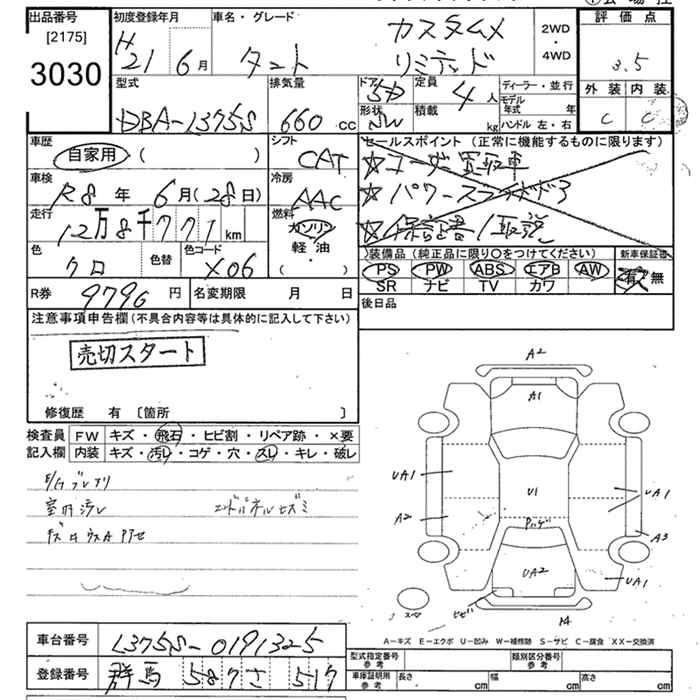 出品番号 初度登録年月 車名・グレード カスタムX 2WD 評価点
[2175] H 21 6月 タント リミテッド ・ 4WD 3.5
3030 型式 排気量 ドア 5D 定員 4人 ディーラー・並行 外装 内装
DBA-L375S 660 cc 形状 SW 積載 kg モデル年式 年 C C
ハンドル 左・右
車歴 シフト セールスポイント (正常に機能するものに限ります)
自家用 ( ) CAT ☆ユーザー買取車
車検 R8 年 6月(28日) 冷房 AAC ☆パワースライドドア
走行 12万8千771km 燃料 ガソリン ☆保証書/取説
色 色替 色コード 軽・油 装備品 (純正品に限り○をつけてください) 新車保証書
クロ X06 ( ・ ) PS PW ABS エアB AW 有 無
SR ナビ TV カワ
R券 9790円 名変期限 月 日 後日品
注意事項申告欄 (不具合内容等は具体的に記入して下さい)
売切スタート
A2
A1
修復歴 有 〔箇所 〕
検査員 FW キズ・飛石・ヒビ割・リペア跡・×要
記入欄 内装 キズ・汚レ・コゲ・穴・スレ・キレ・破レ
UA1 U1 UA1
室内汚レ エンドパネルヒズミ
A2 A3
UA2 UA1
A-キズ E-エクボ U-凹み W-補修跡 S-サビ C-腐食 XX-交換済
車台番号 L375S-0191325
型式指定番号 参考 類別区分番号 参考
登録番号 群馬 587 さ 517
車庫証明用 参考 長さ cm 幅 cm 高さ cm